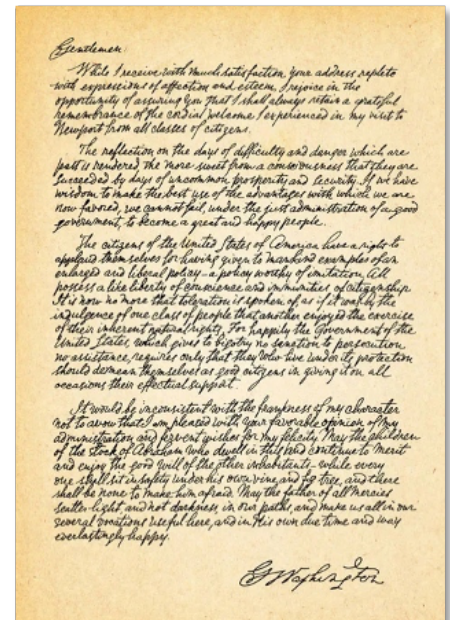 Gentlemen:
While I receive with much satisfaction your address replete
with expressions of affection and esteem, I rejoice in the
opportunity of assuring you that I shall always retain a grateful
remembrance of the cordial welcome I experienced in my visit to
Newport from all classes of citizens.
The reflection on the days of difficulty and danger which are
past is rendered the more sweet from a consciousness that they are
succeeded by days of uncommon prosperity and security. If we have
wisdom to make the best use of the advantages with which we are
now favored, we cannot fail, under the just administration of a good
government, to become a great and happy people.
The citizens of the United States of America have a right to
applaud themselves for having given to mankind examples of an
enlarged and liberal policy—a policy worthy of imitation. All
possess a like liberty of conscience and immunities of citizenship.
It is now no more that toleration is spoken of, as if it was by the
indulgence of one class of people that another enjoyed the exercise
of their inherent natural rights. For happily the Government of the
United States, which gives to bigotry no sanction to persecution
no assistance, requires only that they who live under its protection
should demean themselves as good citizens in giving it on all
occasions their effectual support.
It would be inconsistent with the frankness of my character
not to avow that I am pleased with your favorable opinion of my
administration and fervent wishes for my felicity. May the children
of the stock of Abraham who dwell in this land continue to merit
and enjoy the good will of the other inhabitants—while every
one shall sit in safety under his own vine and fig tree, and there
shall be none to make him afraid. May the father of all mercies
scatter light, and not darkness, in our paths, and make us all in our
several vocations useful here, and in His own due time and way
everlastingly happy.
G Washington